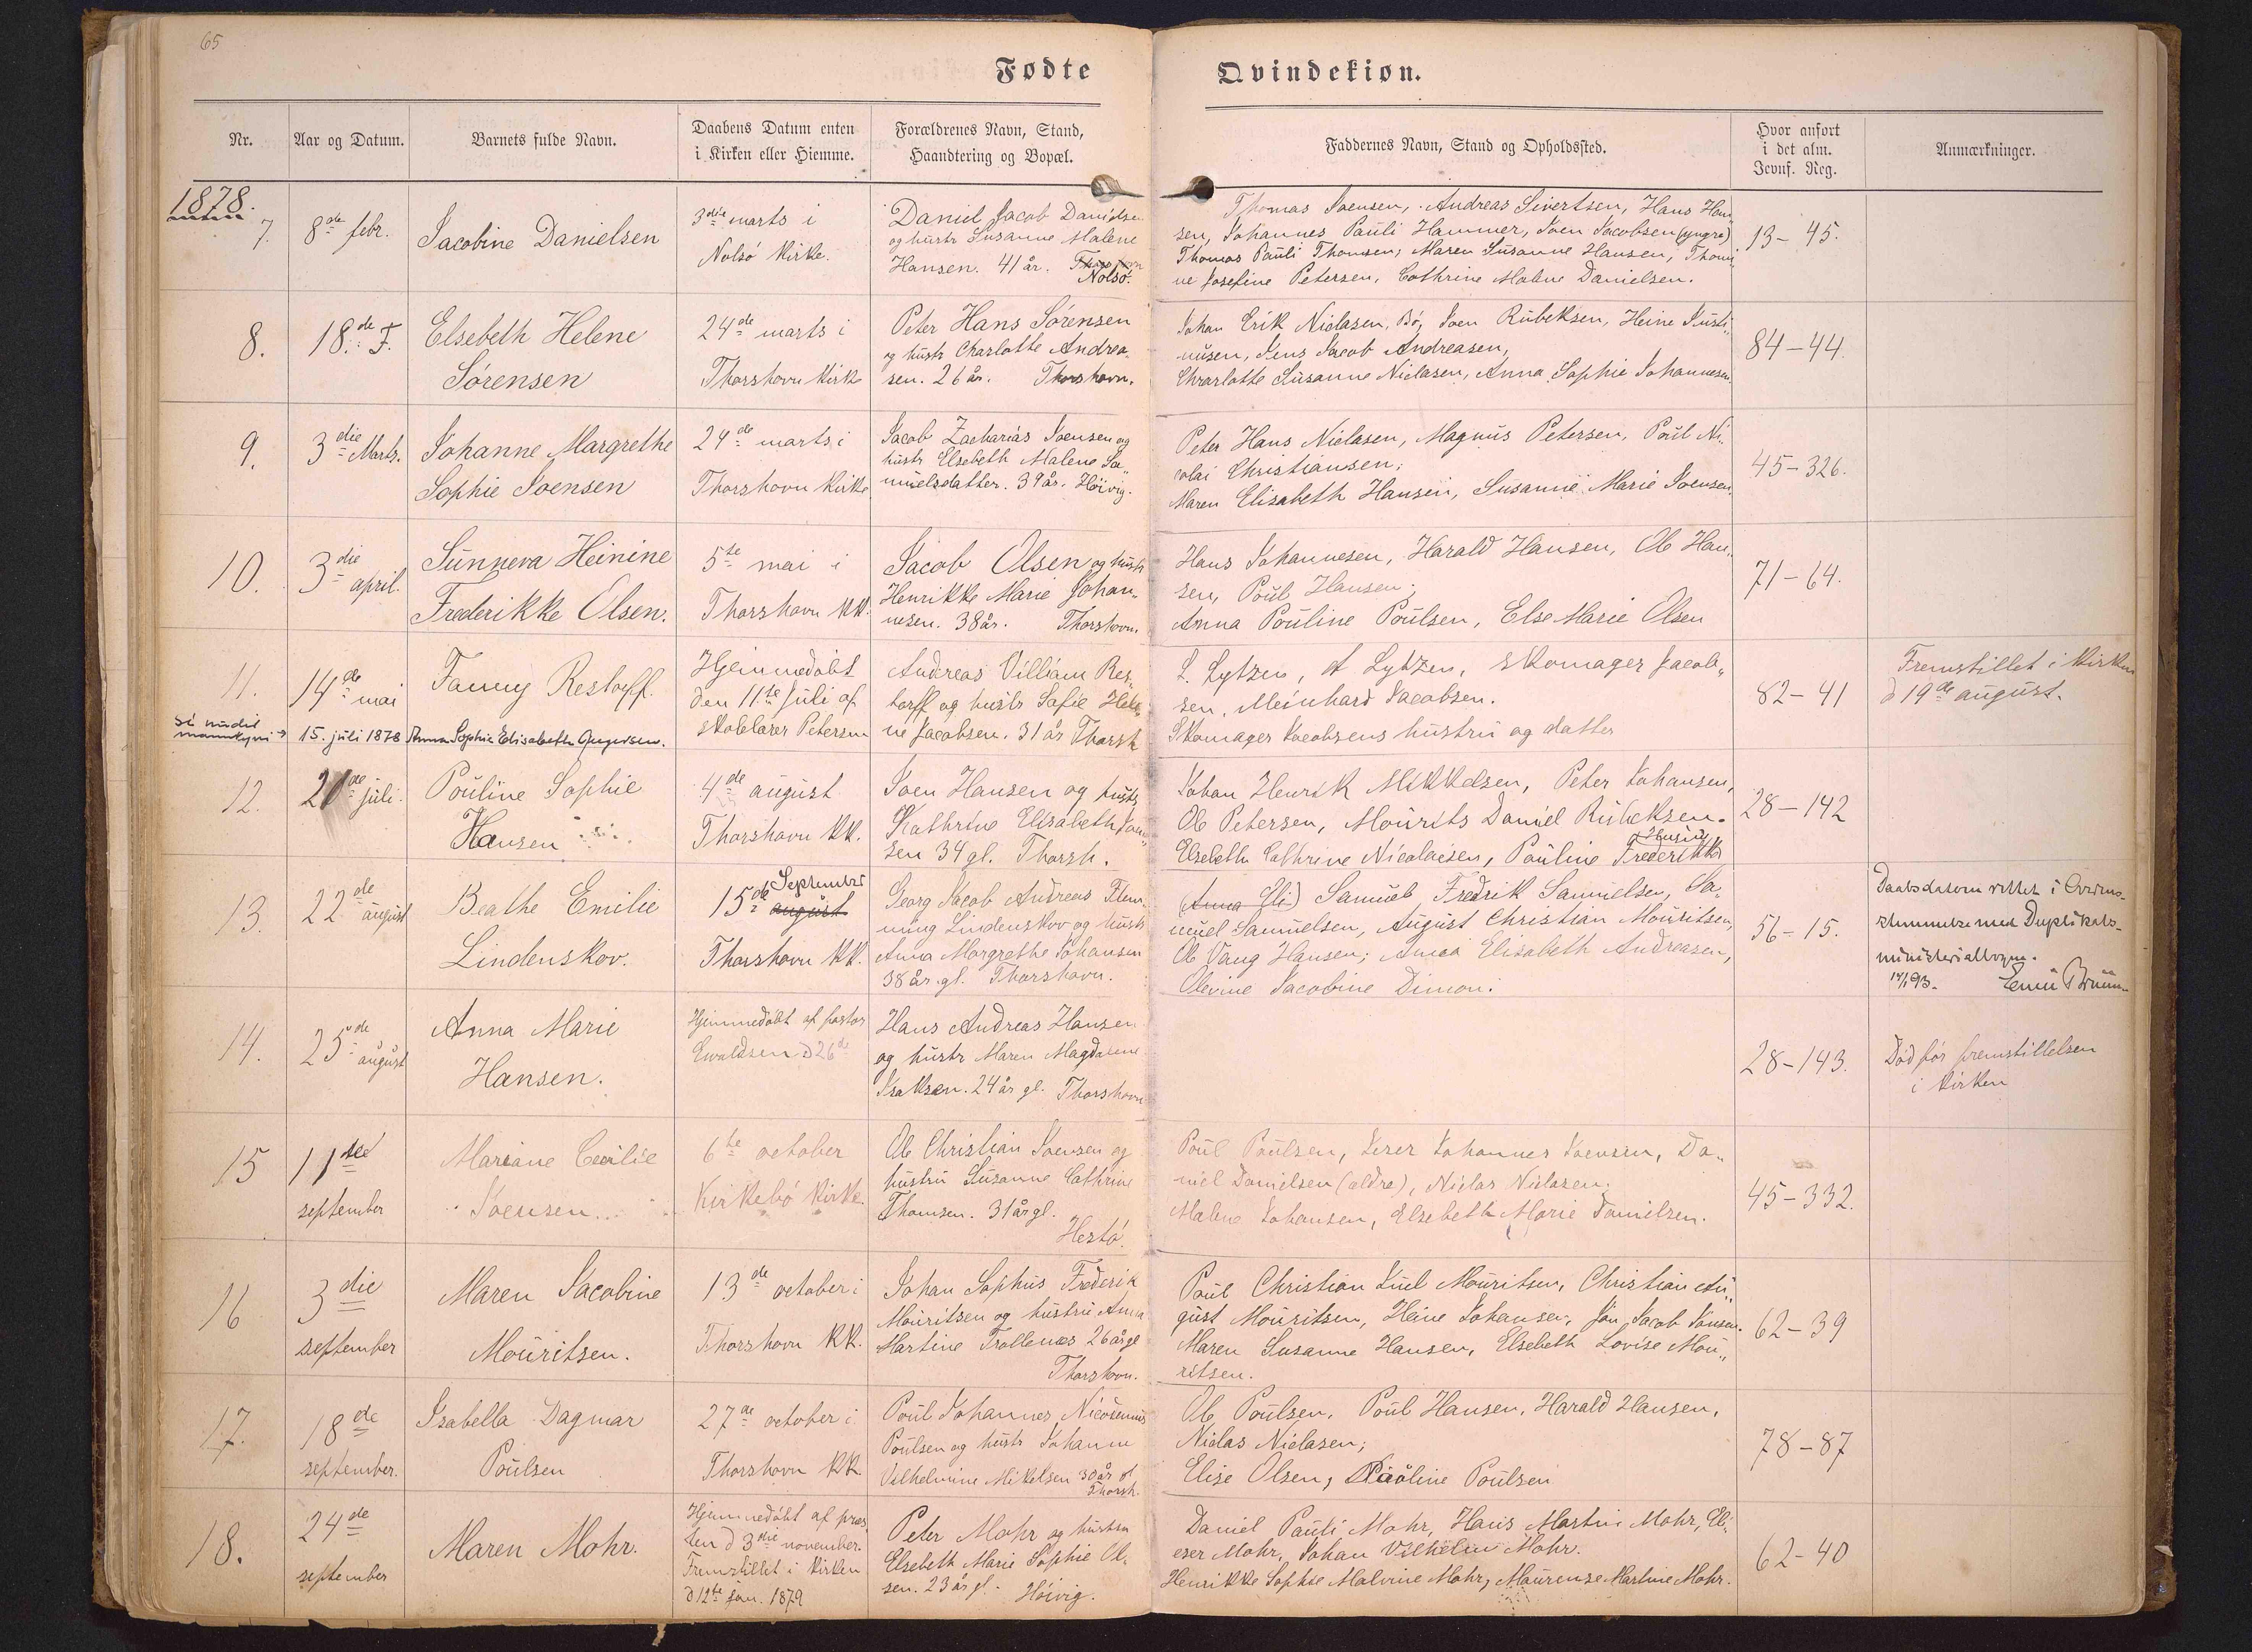 65
Fødte
Qvindekiøn.
Nr.
Aar og Datum.
Barnets fulde Navn.
Daabens Datum enten
i Kirken eller Hiemme.
Forældrenes Navn, Stand,
Haandtering og Bopæl.
Faddernes Navn, Stand og Opholdssted.
Hvor anført
i det alm.
Jevnf. Reg.
Anmærkninger.
1878.
7.
8de febr.
Jacobine Danielsen
3die marts i
Nolsö Kirke.
Daniel Jacob Danielsen
og hustr Susanne Malene
Hansen. 41 år.
Nolsö.
Thomas Joensen, Andreas Sivertsen, Hans Han„
sen, Johannes Pauli Hammer, Joen Jacobsen (yngre)
Thomas Pauli Thomsen; Maren Susanne Hansen, Thomi„
ne Josefine Petersen, Cathrine Malene Danielsen.
13-45.
8.
18de F.
Elsebeth Helene
Sörensen
24de marts i
Thorshavn Kirke
Peter Hans Sörensen
og hustr Charlotte Andrea„
sen. 26 år. Thorshavn.
Johan Erik Niclasen, Bö, Joen Rubeksen, Heine Justi„
nusen, Jens Jacob Andreasen,
Chrarlotte Susanne Niclasen, Anna Sophie Johannesen.
84-44.
9.
3die Marts.
Johanne Margrethe
Sophie Joensen
24de marts i
Thorshavn Kirke
Jacob Zacharias Joensen og
hustr Elsebeth Malene Sa„
muelsdatter. 39 år. Höivig.
Peter Hans Niclasen, Magnus Petersen, Poul Ni„
colai Christiansen;
Maren Elisabeth Hansen, Susanne Marie Joensen.
45-326.
10.
3die april.
Sunneva Heinine
Frederikke Olsen.
5te mai i
Thorshavn KK.
Jacob Olsen og hustr
Henrikke Marie Johan„
nesen. 38 år. Thorshavn.
Hans Johannesen, Harald Hansen, Ole Han„
sen, Poul Hansen;
Anna Pouline Poulsen, Else Marie Olsen
71-64.
11.
14de mai
Fanny Restorff.
Hjemmedöbt
den 11te Juli af
skolelärer Petersen
Andreas Villiam Res„
torff og hustr Safie Hele„
ne Jacobsen. 31 år Thorsh
L. Lytzen, A Lytzen, skomager Jacob„
sen, Meinhard Jacobsen.
Skomager Jacobsens hustru og datter
82-41
Fremstillet i Kirken
d 19de august.
15. juli 1878 Anna Sophie Elisabeth
12.
21de juli.
Pouline Sophie
Hansen
4de august
Thorshavn KK.
Joen Hansen og hustr
Kathrine Elisabeth Joen„
sen 34 gl. Thorsh.
Johan Henrik Mikkelsen, Peter Johansen,
Ole Petersen, Mourits Daniel Rubeksen.
Elsebeth Cathrine Nicolaisen, Pauline Frederikke
28-142
13.
22de august
Beathe Emilie
Lindenskov.
15de September
august
Thorshavn KK.
Georg Jacob Andreas Flem„
ming Lindenskov og hustr
Anna Margrethe Johansen
38 år gl. Thorshavn.
Samuel Fredrik Samuelsen, Sa„
muel Samuelsen, August Christian Mouritsen,
Ole Vang Hansen; Anna Elisabeth Andreasen,
Olevine Jacobine Dimon.
56-15.
Daabsdatoen rettet i Overens-
stemmelse med Duplikats-
ministerialbogen.
14.
25de august
Anna Marie
Hansen.
Hjemmedöbt af pastor
Evaldsen d 26de
Hans Andreas Hansen
og hustr Maren Magdalene
Isaksen. 24 år gl. Thorshavn
28-143.
Död för fremstillelsen
i kirken
15
11te
september
Mariane Cecilie
Joensen
6te october
Kirkebö Kirke.
Ole Christian Joensen og
hustru Susanne Cathrine
Thomsen. 31 år gl.
Hestö.
Poul Poulsen, Johannes Joensen, Da„
niel Danielsen (ældre), Niclas Niclasen.
Malene Johansen, Elsebeth Marie Danielsen.
45-332.
16
3die
september
Maren Jacobine
Mouritsen.
13de october i
Thorshavn KK.
Johan Sophus Frederik
Mouritsen og hustru Anna
Martine Trollenæs 26 år gl
Thorshavn.
Poul Christian Juul Mouritsen, Christian Au„
gust Mouritsen, Heine Johansen, Jan Jacob Jansen.
Maren Susanne Hansen, Elsebeth Lovise Mou„
ritsen.
62-39
17.
18de
september.
Isabella Dagmar
Poulsen
27de october i
Thorshavn KK.
Poul Johannes Nicodemus
Poulsen og hustr Johanne
Vilhelmine Mikelsen 30 år gl
Thorsh.
Ole Poulsen, Poul Hansen, Harald Hansen,
Niclas Niclasen;
Elise Olsen, Pauline Poulsen
78-87
18.
24de
september
Maren Mohr.
Hjemmedöbt af præs„
ten d 3die november.
Fremstillet i Kirken
d 12te jan. 1879
Peter Mohr og hustru
Elsebeth Marie Sophie Ol„
sen. 23 år gl. Höivig.
Daniel Pauli Mohr, Hans Martin Mohr, Eli„
eser Mohr, Johan Vilhelm Mohr.
Henrikke Sophie Malvine Mohr, Maurense Martine Mohr.
62-40